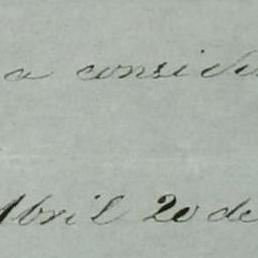 a consider
Abril 20 de